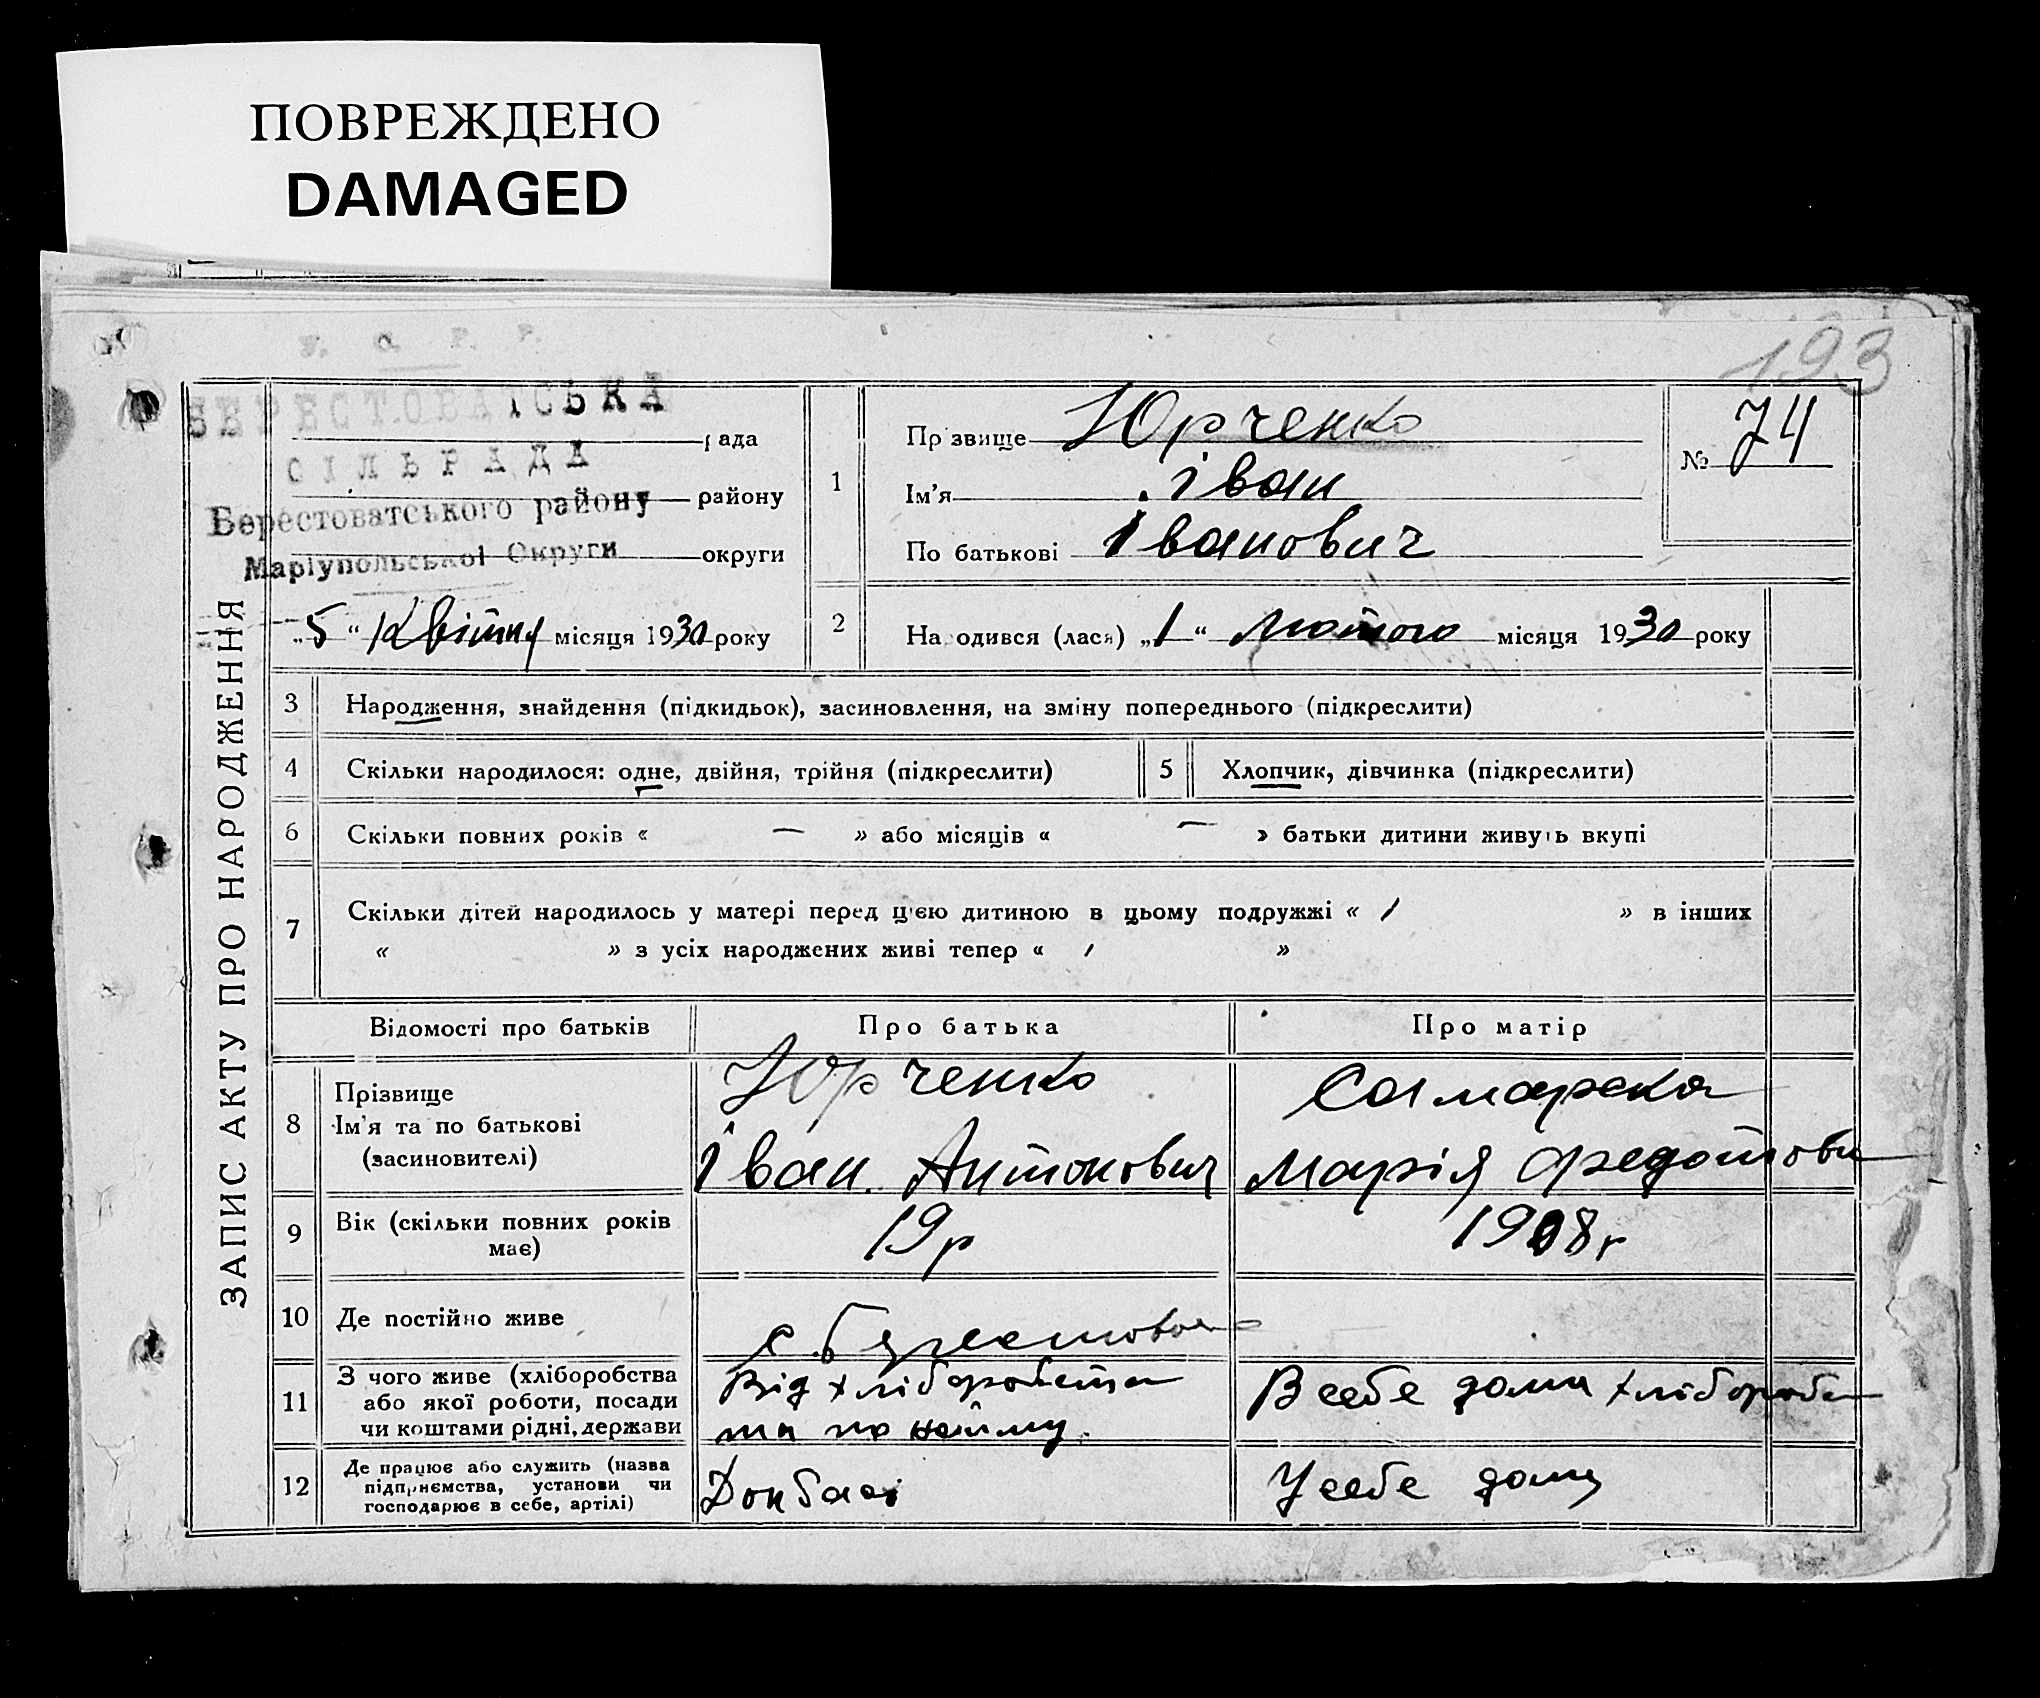 ПОВРЕЖДЕНО
DAMAGED
193
У. С. Р. Р.
БЕРЕСТОВАТСЬКА
рада
СІЛЬРАДА
Берестоватського району району
Маріупольської Округи округи
„5“ Квітня місяця 1930 року
ЗАПИС АКТУ ПРО НАРОДЖЕННЯ
1 Прізвище Юрченко
Ім'я Іван
По батькові Іванович
№ 74
2 Народився (лася) „1“ Лютого місяця 1930 року
3 Народження, знайдення (підкидьок), засиновлення, на зміну попереднього (підкреслити)
4 Скільки народилося: одне, двійня, трійня (підкреслити) 5 Хлопчик, дівчинка (підкреслити)
6 Скільки повних років « — » або місяців « — » батьки дитини живуть вкупі
7 Скільки дітей народилось у матері перед ц'єю дитиною в цьому подружжі « 1 » в інших
« » з усіх народжених живі тепер « 1 »
Відомості про батьків Про батька Про матір
8 Прізвище
Ім'я та по батькові
(засиновителі)
Юрченко
Іван Антонович
Самарска
Марія Федотовн
9 Вік (скільки повних років
має)
19р
1908р
10 Де постійно живе
с.
11 З чого живе (хліборобства
або якої роботи, посади
чи коштами рідні, держави
Від хліборобства
та по найму.
В себе дома хлібороб
12 Де працює або служить (назва
підприємства, установи чи
господарює в себе, артілі)
Донбасі
У себе дома